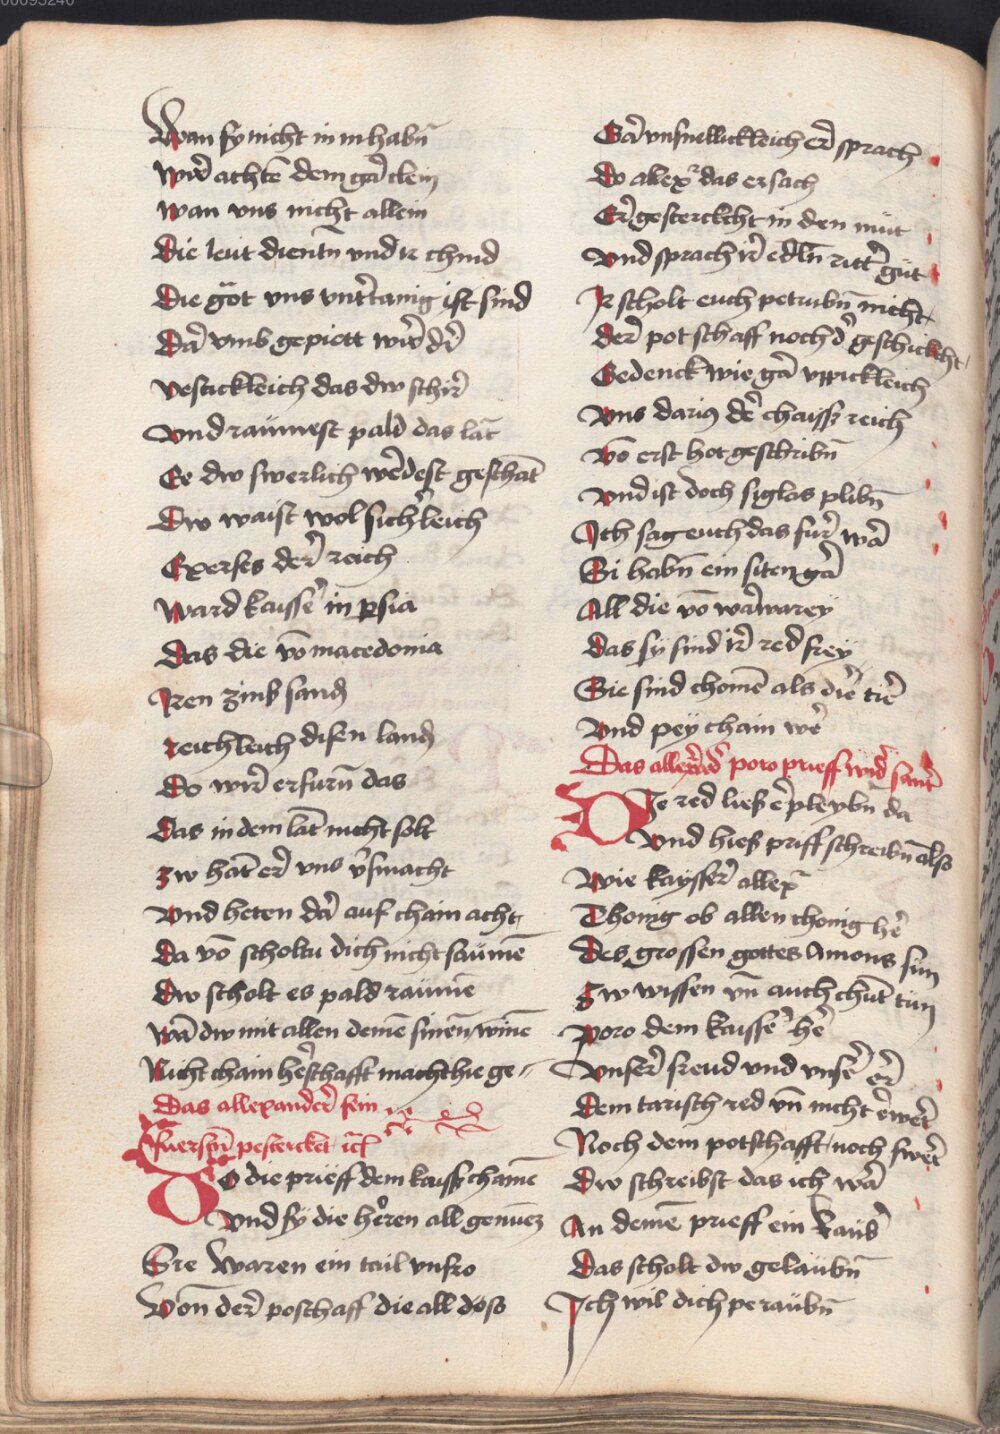 00095240
Wan sy nicht in in habn̄
Wir̄ achtē dem gar̄ clein
Wan uns nicht allein
Die leut dientn̄ und ir chind
Die got uns untr̄tanig ist sind
Dar̄ umb gepiett wir̄ dir̄
vestickleich das dw schir̄
Und raümest pald das lāt
Ee dw swerlich wer̄dest geschāt
Dw waist wol sichr̄leich
Exerses der̄ reich
Ward kaisser̄ in persia
Das die vō macedonia
Iren zinß sand
reichleich disen land
Do wir̄ erfurn̄ das
Das in dem lāt nicht solt
zw hāt er̄ uns v̄smacht
Und heten dar̄ auf chain acht
Da vō scholtu dich nicht saümē
Dw scholt es pald raümē
Wā dw mit allen deinē sinēn winē
Nicht chain her̄schafft macht hie ge
Das allexander̄ sein
O die prieff dem kaiss chamē
Und sy die hēren all
Sie Waren ein tail unfro
Von der̄ poschaff die all doso
Gar̄ unsnellickleich er̄ sprach
Do allexr̄ das ersach
Er̄ gesterckcht in den müt
Und sprach ir̄ edln̄ rittr̄ güt
Ir scholt euch petrubn̄ nicht
Der̄ potschaff noch dr̄ geschickcht
Gedenck wie gar̄ uppickleich
Uns darius der̄ chaiss reich
Vō erst hot geschribn̄
Und ist doch siglos plibn̄
Ich sag euch das fur̄ war̄
Si habn̄ ein siten gar̄
All die vō warwarey
Das sy sind ir̄ red frey
Sie sind chomē als die tir̄
Und pey chain wer̄
Das allexādr̄ poro prieff widr̄ sant
Die red ließ er̄ pleybn̄ da
Und hieß priff schreibn̄ also
Wie kaysser̄ allexr̄
Chonig ob allen chonig her̄
Des grossen gottes Amons sun
Zw wissen vn̄ auch chūt tün
Poro dem kaisser̄ her̄
Unser̄ freud und unser̄ er̄
Dem tarisch red vn̄ nicht er̄wer̄t
Noch dem potschafft noch swer̄t
Dw schreibst das ich war̄
An deinē prieff ein kaüsr̄
Das scholt dw gelaübn̄
Ich wil dich peraübn̄